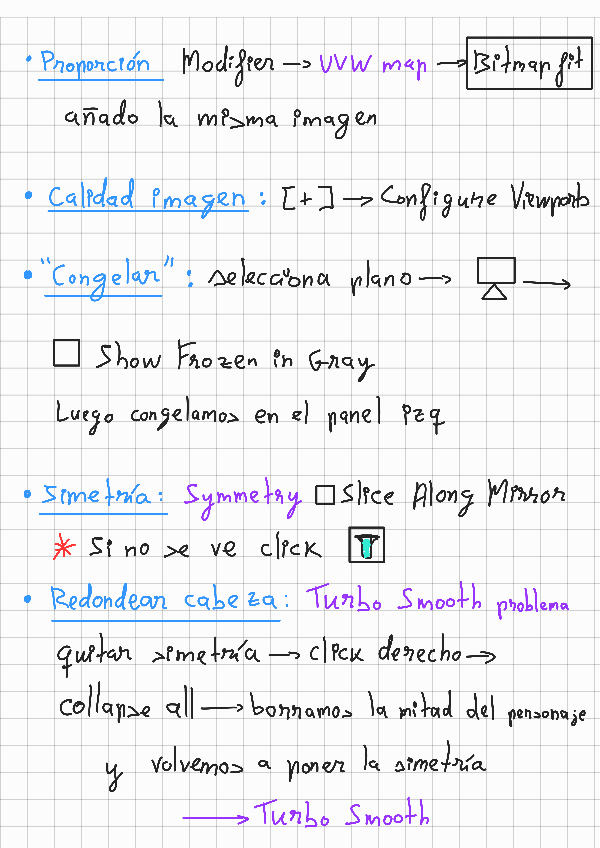 • Proporción Modifier → UVW map → Bitmap fit
añado la misma imagen
• Calidad imagen: [+] → Configure Viewports
• "Congelar": selecciona plano →
Show Frozen in Gray
Luego congelamos en el panel izq
• Simetría: Symmetry □ Slice Along Mirror
* Si no se ve click
• Redondear cabeza: Turbo Smooth problema
quitar simetría → click derecho →
collapse all → borramos la mitad del personaje
y volvemos a poner la simetría
→ Turbo Smooth